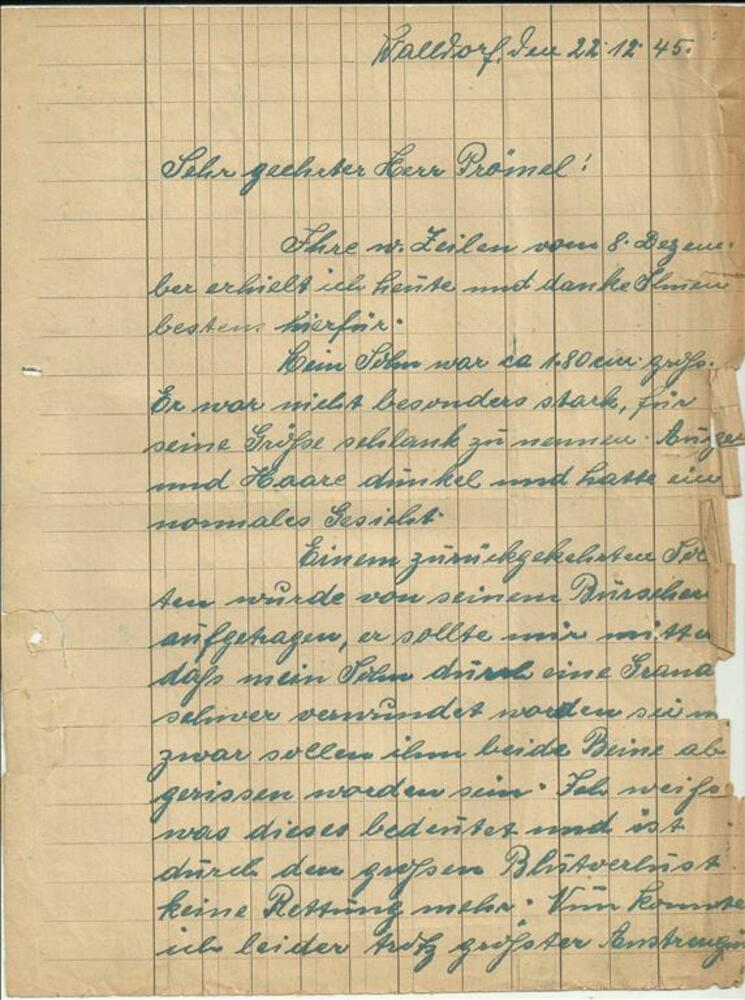 Walldorf, den 22.12.45.
Sehr geehrter Herr Prömel!
Ihre w. Zeilen vom 8. Dezem-
ber erhielt ich heute und danke Ihnen
bestens hierfür.
Mein Sohn war ca 1.80 cm. groß.
Er war nicht besonders stark, für
seine Größe schlank zu nennen. Augen
und Haare dunkel und hatte ein
normales Gesicht.
Einem zurückgekehrten Sol
ten wurde von seinem Burschen
aufgetragen, er sollte mir mitte
daß mein Sohn durch eine Grana
schwer verwundet worden sei
zwar sollen ihm beide Beine ab
gerissen worden sein. Ich weiß
was dieses bedeutet und ist
durch den großen Blutverlust
keine Rettung mehr. Nun konnte
ich leider trotz größter Anstrengu